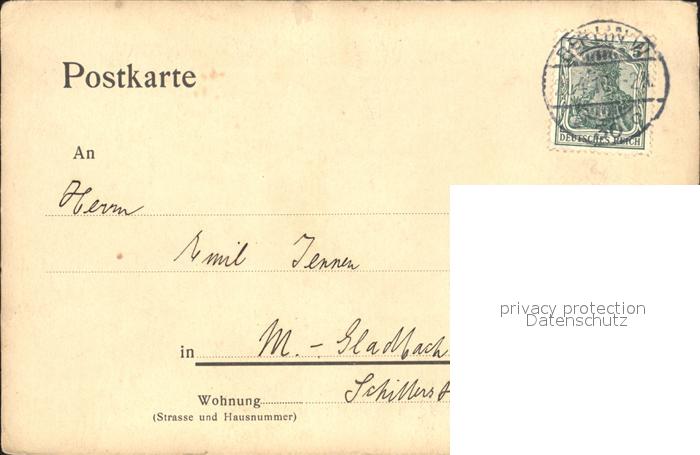 Postkarte
BERLIN W
5
DEUTSCHES REICH
An
Herrn
Emil Jennen
privacy protection
Datenschutz
in M.-Gladbach
Schillerst
Wohnung
(Strasse und Hausnummer)